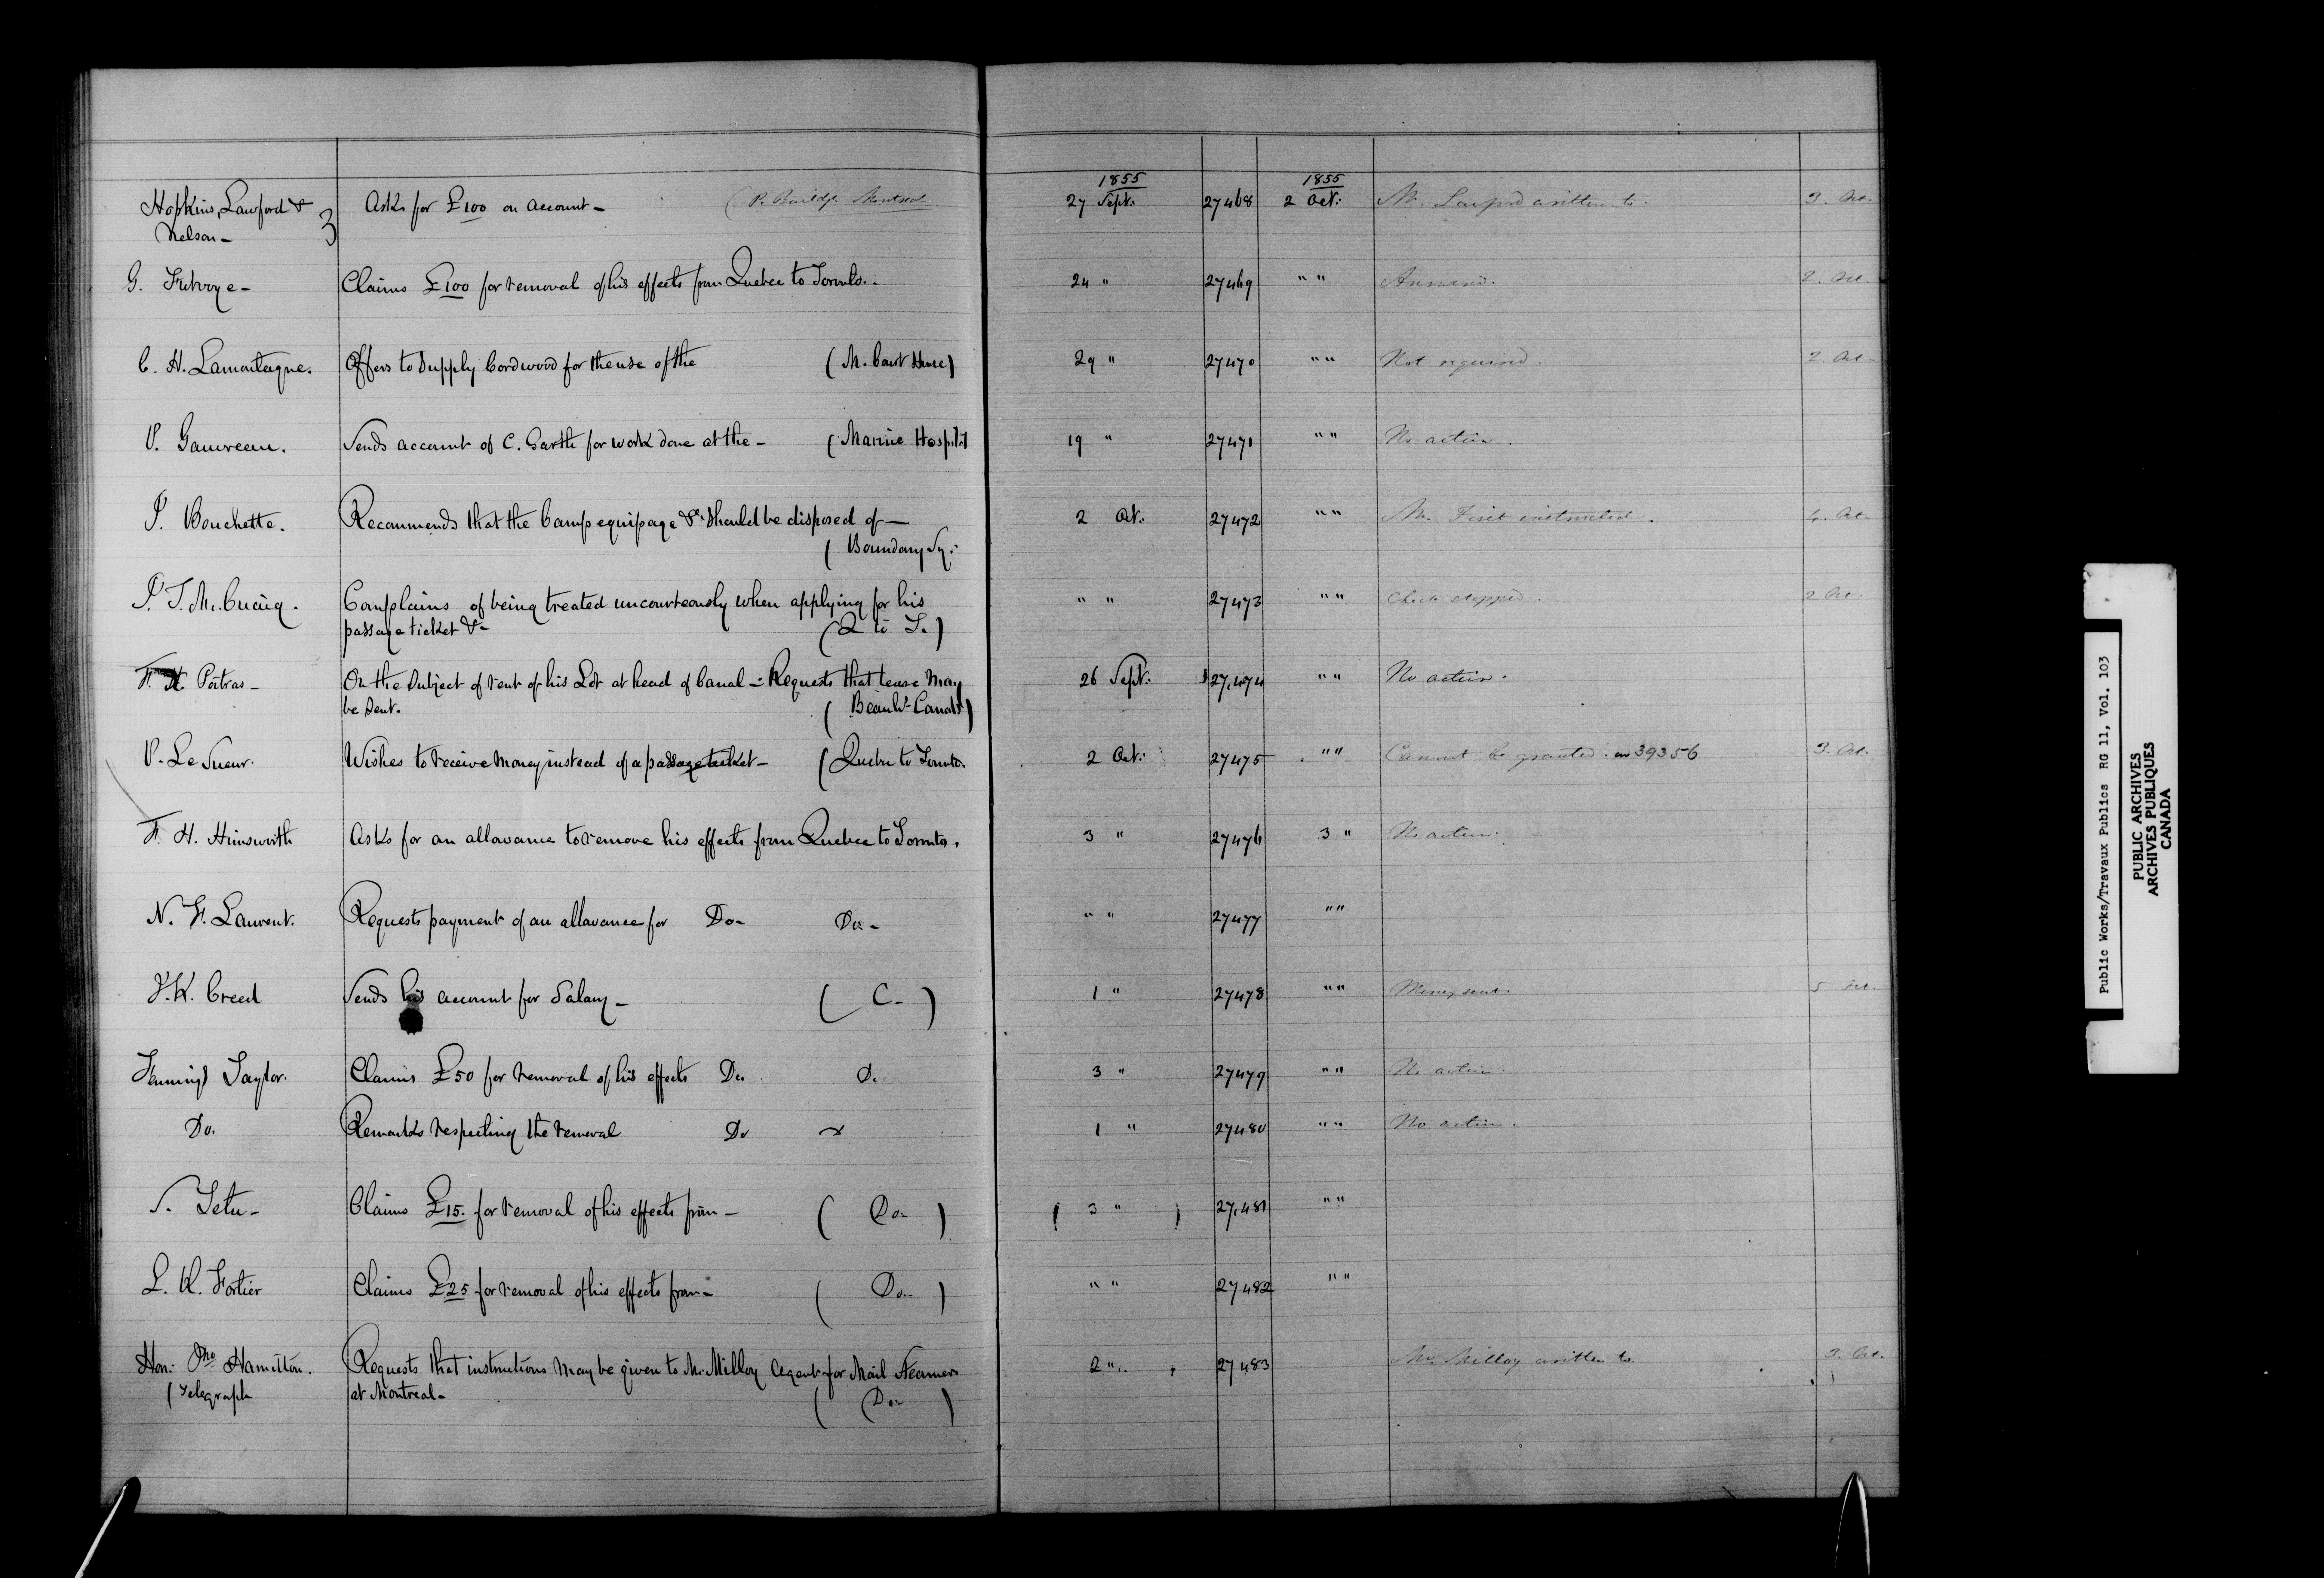 1855 1855
Hopkins, Lawford & Asks for £100 on account - (P. Buildgs. Montreal 27 Sept: 27468 2 Oct: Mr. Lawford written to. 3. Oct.
Nelson -
G. Futvoye - Claims £100 for removal of his effects from Quebec to Toronto. - 24 " 27469 " " Answered. 2. Oct.
C. H. Lamontagne. Offers to supply Cordwood for the use of the (M. Court House) 29 " 27470 " " Not required. 2. Oct.
P. Gauvreau. Sends account of C. Garth for work done at the - (Marine Hospital 19 " 27471 " " No action.
J. Bouchette. Recommends that the Camp equipage &c. should be disposed of - 2 Oct: 27472 " " Mr. instructed. 4. Oct.
(Boundary Sy:
P. J. Complains of being treated uncourteously when applying for his " " 27473 " " stopped. 2 Oct.
passage ticket &- (Q to T.)
F. X Poitras - On the subject of rent of his Lot at head of Canal - Requests that lease may 26 Sept: 27,474 " " No action.
be sent. (Beauhs. Canal)
P. Le Sueur. Wishes to receive money instead of a passage ticket - (Quebec to Toronto. 2 Oct: 27475 " " Cannot be granted. 39356 3. Oct.
F. H. Himsworth Asks for an allowance to remove his effects from Quebec to Toronto. 3 " 27476 3 " No action.
N. F. Laurent. Requests payment of an allowance for Do- Do - " " 27477 " "
Creed Sends his account for Salary - (C-) 1 " 27478 " " Money sent. 5 Oct.
Fennings Taylor. Claims £50 for removal of his effects Do Do 3 " 27479 " " No action.
Do. Remarks respecting the removal Do 1 " 27480 " " No action.
Tetu - Claims £15. for removal of his effects from - (Do-) (3 ") 27,481 " "
L. R. Fortier Claims £25 for removal of his effects from - (Do-) " " 27482 " "
Hon: Jno Hamilton. Requests that instructions may be given to Mr. Milloy Agent for Mail Steamers 2 " 27483 Mr. Milloy written to 3. Oct.
(Telegraph at Montreal - (Do-)
Public Works/Travaux Publics RG 11, Vol. 103
PUBLIC ARCHIVES
ARCHIVES PUBLIQUES
CANADA